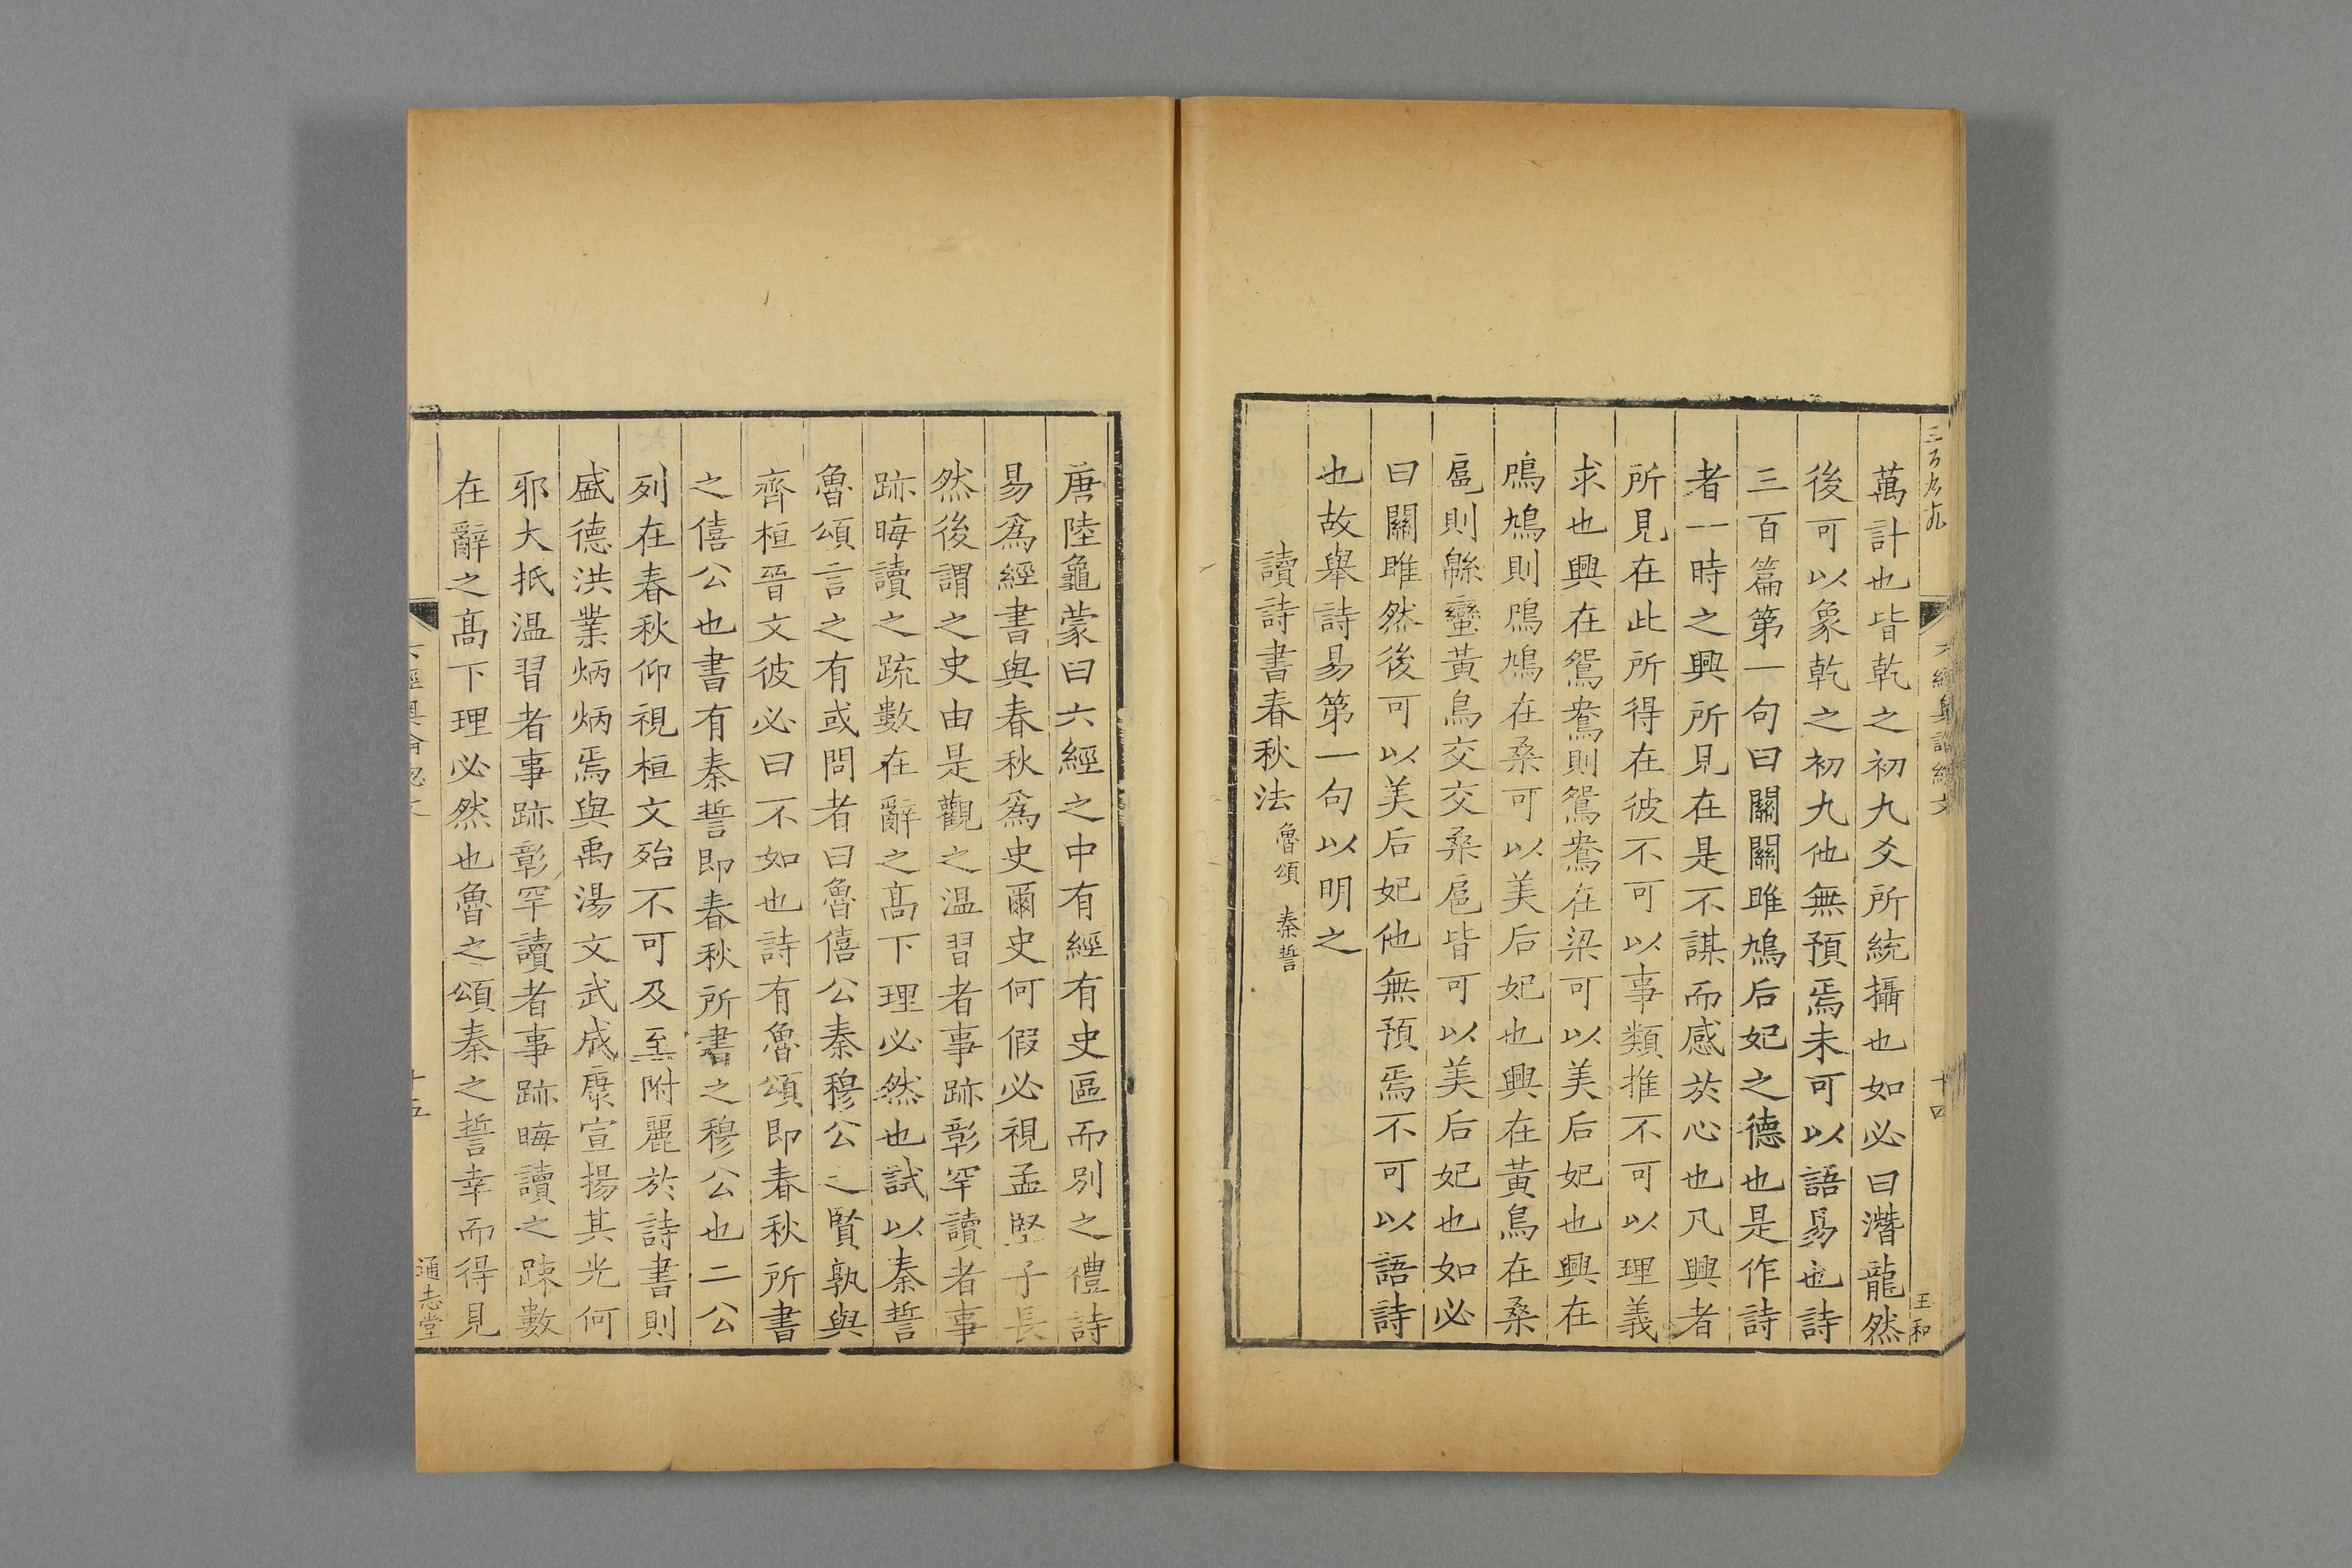 三百九十九
六經奧論總文
十四
王和
萬計也皆乾之初九爻所統攝也如必曰潛龍然
後可以象乾之初九他無預焉未可以語易也詩
三百篇第一句曰關關雎鳩后妃之德也是作詩
者一時之興所見在是不謀而感於心也凡興者
所見在此所得在彼不可以事類推不可以理義
求也興在鴛鴦則鴛鴦在梁可以美后妃也興在
鳲鳩則鳲鳩在桑可以美后妃也興在黃鳥在桑
扈則緜蠻黃鳥交交桑扈皆可以美后妃也如必
曰關雎然後可以美后妃他無預焉不可以語詩
也故舉詩易第一句以明之
讀詩書春秋法 魯頌 秦誓
唐陸龜蒙曰六經之中有經有史區而別之禮詩
易爲經書與春秋爲史爾史何假必視孟堅子長
然後謂之史由是觀之温習者事跡彰罕讀者事
跡晦讀之疏數在辭之高下理必然也試以秦誓
魯頌言之有或問者曰魯僖公秦穆公之賢孰與
齊桓晉文彼必曰不如也詩有魯頌即春秋所書
之僖公也書有秦誓即春秋所書之穆公也二公
列在春秋仰視桓文殆不可及至附麗於詩書則
盛德洪業炳炳焉與禹湯文武成康宣揚其光何
邪大抵温習者事跡彰罕讀者事跡晦讀之踈數
在辭之高下理必然也魯之頌秦之誓幸而得見
十五
通志堂